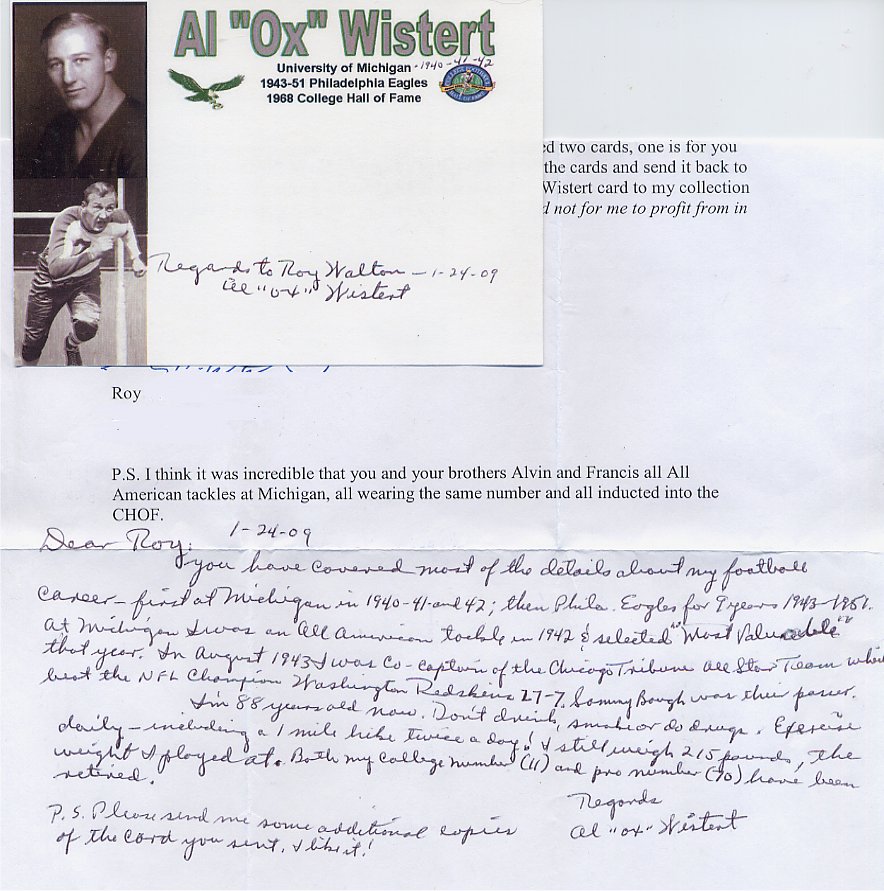 Al "Ox" Wistert
University of Michigan - 1940-41-42
1943-51 Philadelphia Eagles
1968 College Hall of Fame
ed two cards, one is for you
the cards and send it back to
Wistert card to my collection
d not for me to profit from in
Regards to Roy Walton - 1-24-09
Al "ox" Wistert
Roy
P.S. I think it was incredible that you and your brothers Alvin and Francis all All
American tackles at Michigan, all wearing the same number and all inducted into the
CHOF.
1-24-09
Dear Roy:
you have covered most of the details about my football
career - first at Michigan in 1940-41-and 42; then Phila. Eagles for 9 years 1943-1951.
At Michigan I was an All American tackle in 1942 & selected "Most Valuable"
that year. In August 1943 I was Co-captain of the Chicago Tribune All Star Team which
beat the NFL Champion Washington Redskins 27-7. Sammy Baugh was their passer.
I'm 88 years old now. Don't drink, smoke or do drugs. Exercise
daily - including a 1 mile hike twice a day! I still weigh 215 pounds, the
weight I played at. Both my College number (11) and pro number (70) have been
retired.
Regards
Al "ox" Wistert
P.S. Please send me some additional copies
of the card you sent. I like it!